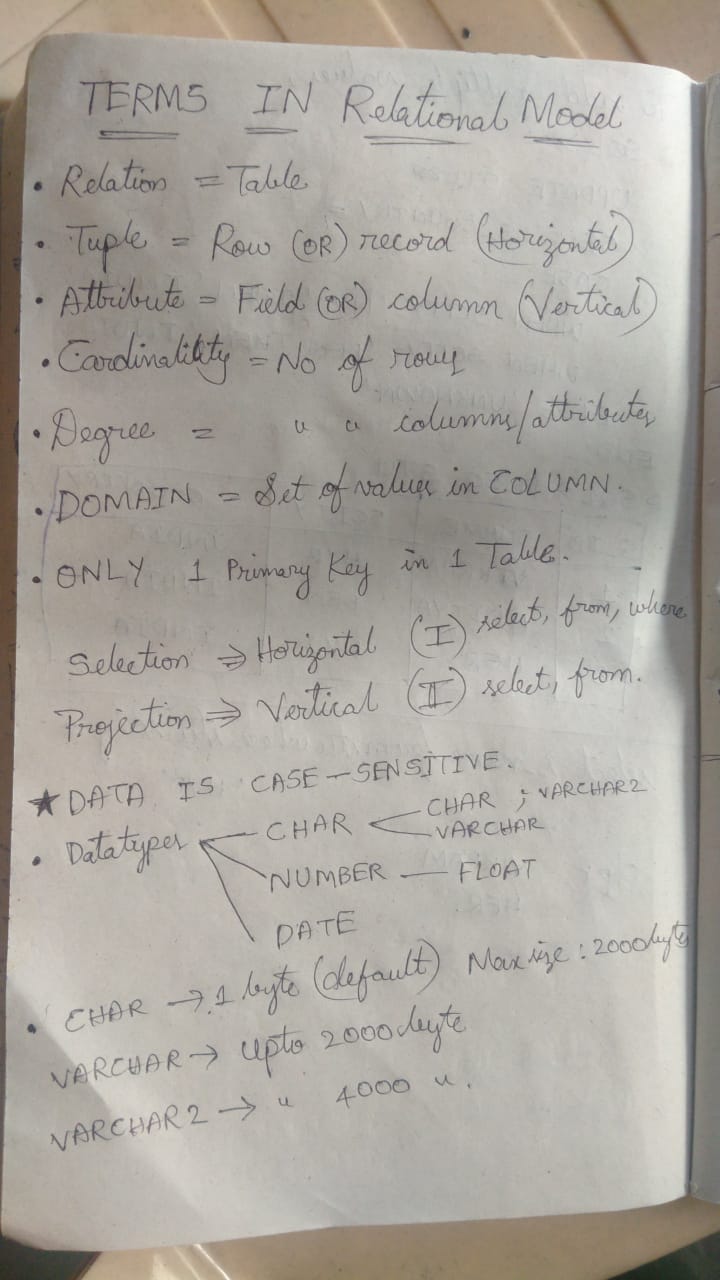 TERMS IN Relational Model
• Relation = Table
• Tuple = Row (OR) record (Horizontal)
• Attribute = Field (OR) column (Vertical)
• Cardinality = No of rows
• Degree = " " columns/attributes
• DOMAIN = Set of values in COLUMN.
• ONLY 1 Primary Key in 1 Table.
Selection ⇒ Horizontal (I) select, from, where
Projection ⇒ Vertical (II) select, from.
★ DATA IS CASE-SENSITIVE.
• Datatypes CHAR CHAR ; VARCHAR2
VARCHAR
NUMBER — FLOAT
DATE
• CHAR → 1 byte (default) Max size : 2000 bytes
VARCHAR → upto 2000 byte
VARCHAR2 → " 4000 ".